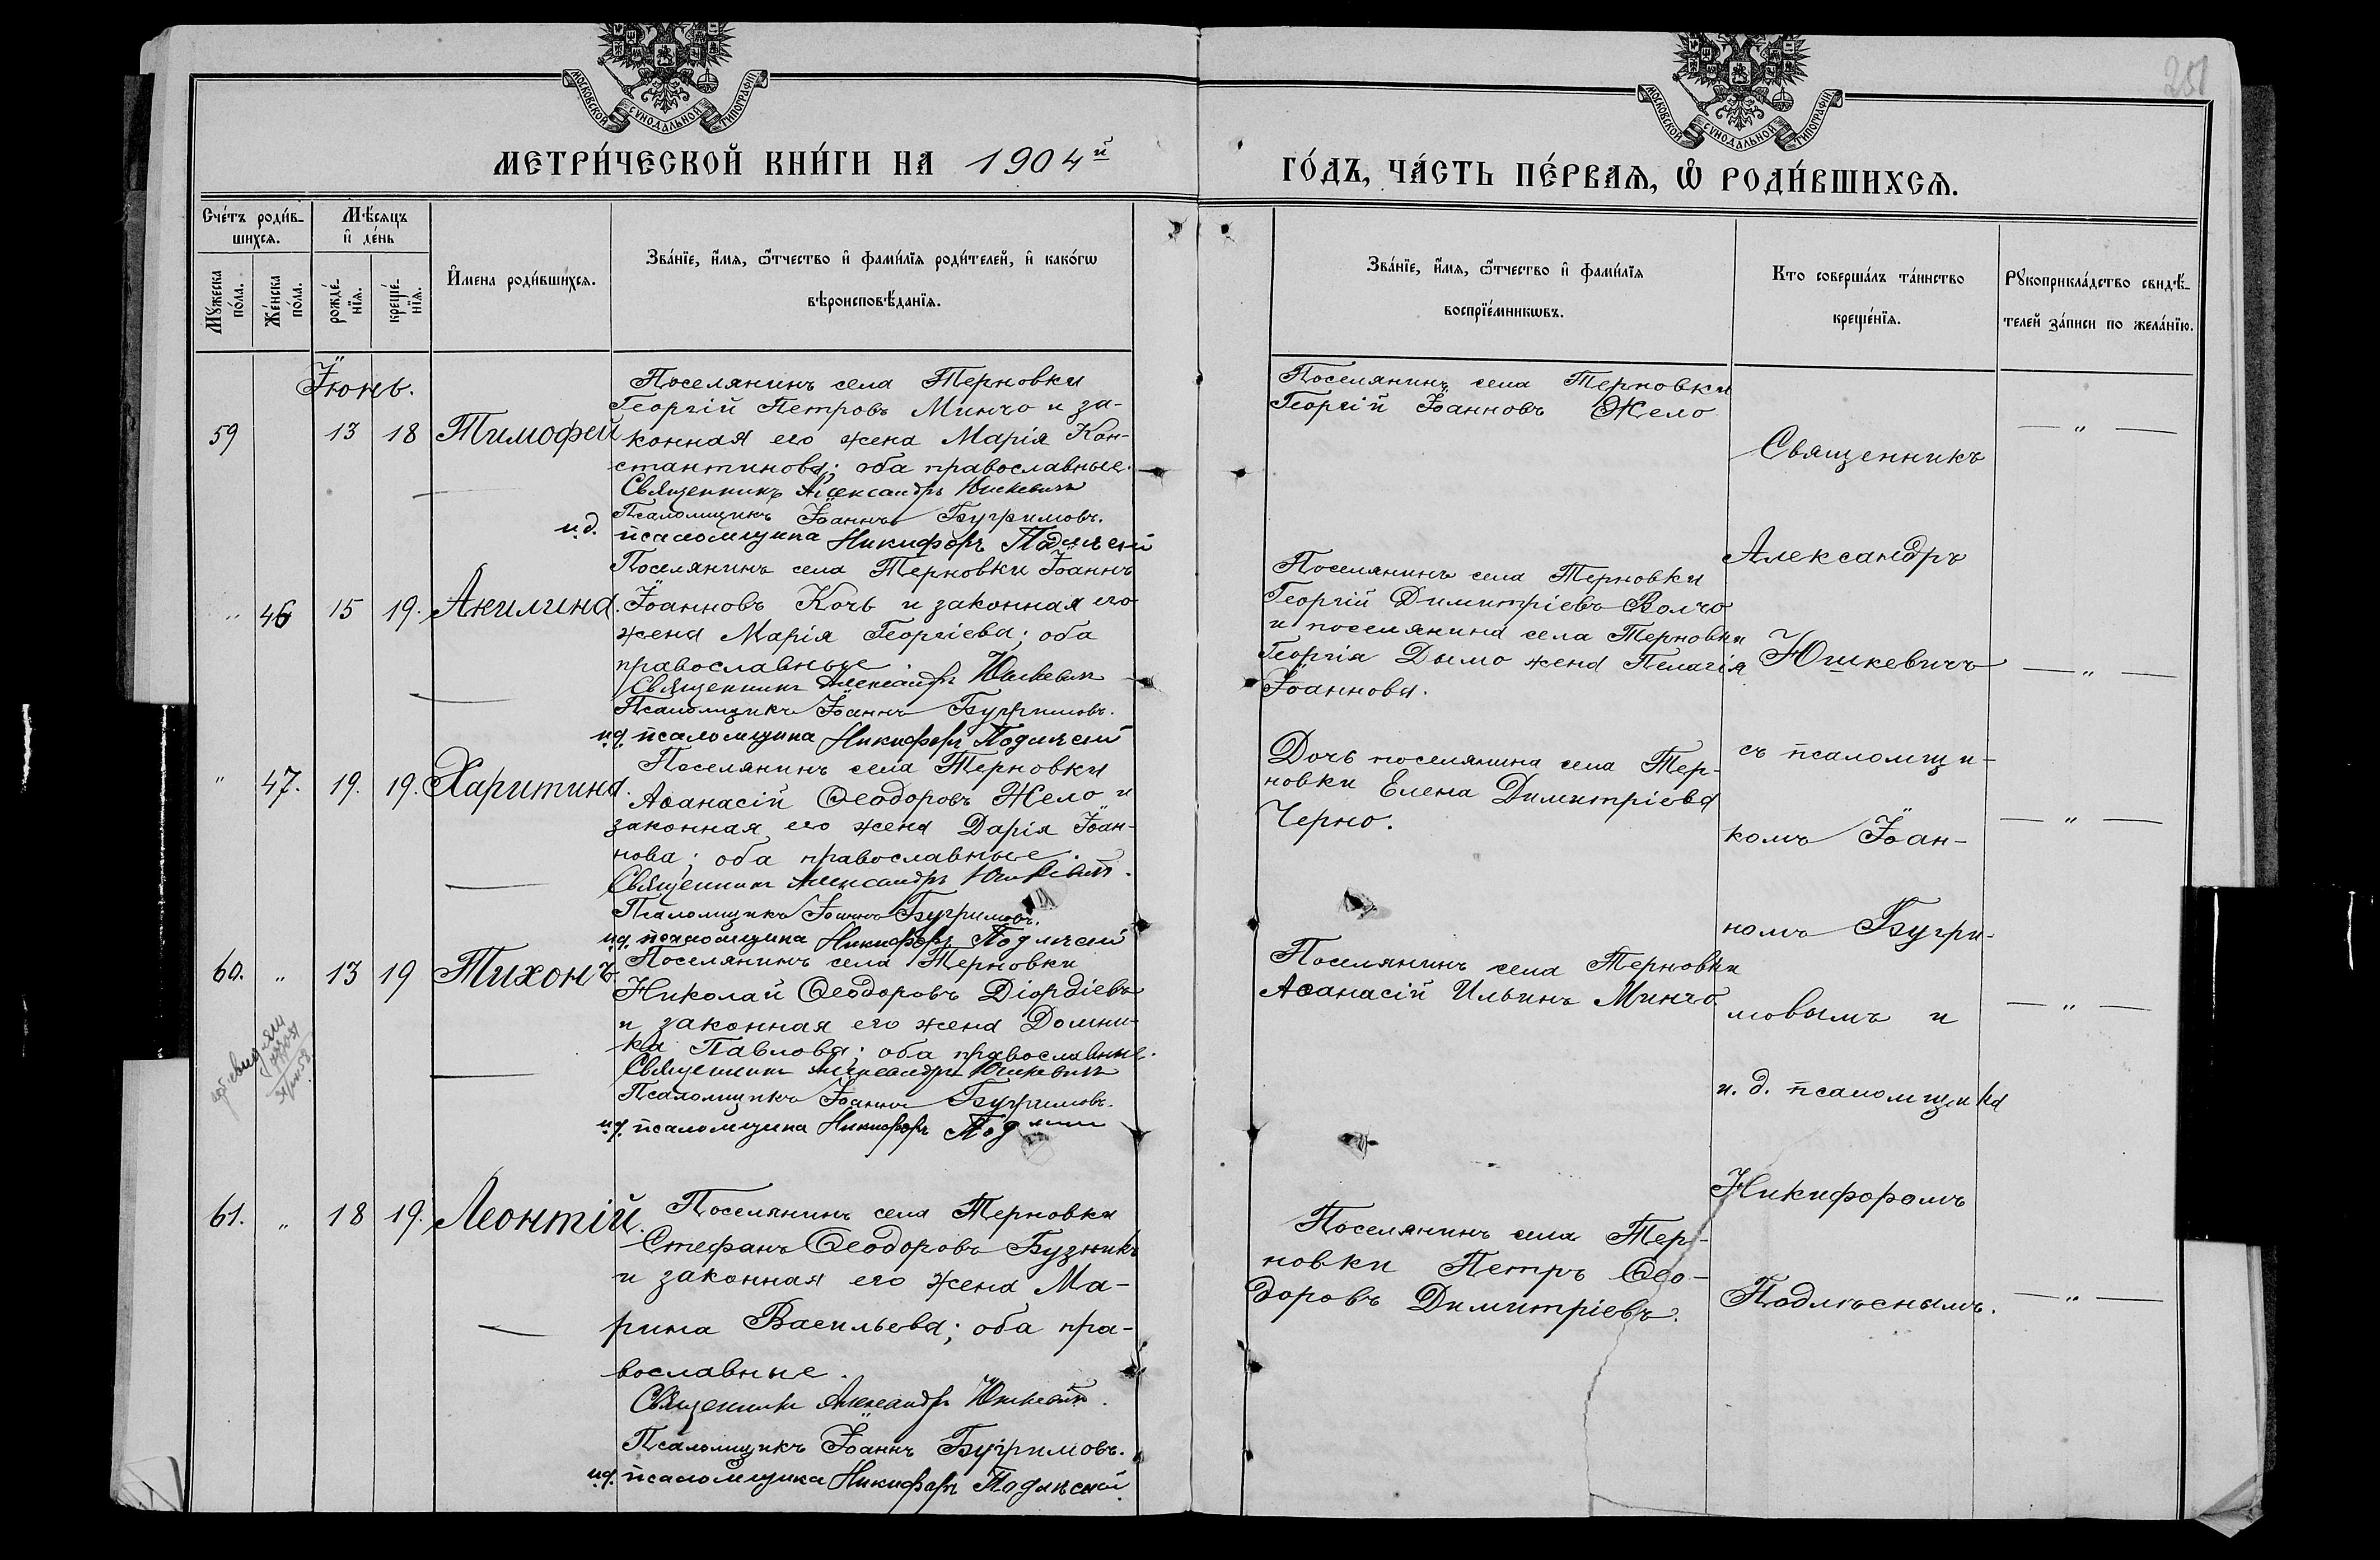 251
МОСКОВСКОЙ СУНОДАЛЬНОЙ ТИПОГРАФІИ
МОСКОВСКОЙ СУНОДАЛЬНОЙ ТИПОГРАФІИ
МЕТРИ́ЧЕСКОЙ КНИ́ГИ НА 1904й
ГО́ДЪ, ЧА́СТЬ ПЕ́РВАѦ, Ѡ РОДИ́ВШИХСѦ.
Сче́тъ роди́в-
шихсѧ.
Мꙋ́жеска
по́ла.
Же́нска
по́ла.
Мѣ́сѧцъ
и҆ де́нь
рожде́-
нїѧ.
креще́-
нїѧ.
И҆мена роди́вшихсѧ.
Зва́нїе, и҆́мѧ, ѻ҆́тчество и҆ фами́лїѧ роди́телей, и҆ како́гѡ
вѣроисповѣ́данїѧ.
Зва́нїе, и҆́мѧ, ѻ҆́тчество и҆ фами́лїѧ
воспрїе́мникѡвъ.
Кто соверша́лъ та́инство
креще́нїѧ.
Рꙋкоприкла́дство свидѣ́-
телей за́писи по жела́нїю.
Іюнь.
59 13 18 Тимофей
Поселянинъ села Терновки
Георгій Петровъ Минчо и за-
конная его жена Марія Кон-
стантинова; оба православные.
Священникъ Александръ Юшкевичъ
Псаломщикъ Іоаннъ Бугримовъ.
и.д. псаломщика Никифоръ Подлѣсный
Поселянинъ села Терновки
Георгій Іоанновъ Жело
— " —
" 46 15 19. Акилина.
Поселянинъ села Терновки Іоаннъ
Іоанновъ Кочь и законная его
жена Марія Георгіева; оба
православные.
Священникъ Александръ Юшкевичъ
Псаломщикъ Іоаннъ Бугримовъ.
и.д. псаломщика Никифоръ Подлѣсный
Поселянинъ села Терновки
Георгій Димитріевъ Волчо
и поселянина села Терновки
Георгія Дымо жена Пелагія
Іоаннова.
— " —
" 47. 19. 19. Харитина.
Поселянинъ села Терновки
Аѳанасій Ѳеодоровъ Жело и
законная его жена Дарія Іоан-
нова; оба православные.
Священникъ Александръ Юшкевичъ.
Псаломщикъ Іоаннъ Бугримовъ.
и.д. псаломщика Никифоръ Подлѣсный
Дочь поселянина села Тер-
новки Елена Димитріева
Черно.
— " —
60. " 13 19 Тихонъ
Поселянинъ села Терновки
Николай Ѳеодоровъ Діордіевъ
и законная его жена Домни-
ка Павлова; оба православные.
Священникъ Александръ Юшкевичъ
Псаломщикъ Іоаннъ Бугримовъ.
и.д. псаломщика Никифоръ
Поселянинъ села Терновки
Аѳанасій Ильинъ Минчо.
— " —
61. " 18 19. Леонтій.
Поселянинъ села Терновки
Стефанъ Ѳеодоровъ Бузникъ
и законная его жена Ма-
рина Васильева; оба пра-
вославные.
Священникъ Александръ Юшкевичъ.
Псаломщикъ Іоаннъ Бугримовъ.
и.д. псаломщика Никифоръ Подлѣсный.
Поселянинъ села Тер-
новки Петръ Ѳео-
доровъ Димитріевъ.
— " —
Священникъ
Александръ
Юшкевичъ
съ псаломщи-
комъ Іоан-
номъ Бугри-
мовымъ и
и. д. псаломщика
Никифоромъ
Подлѣснымъ.